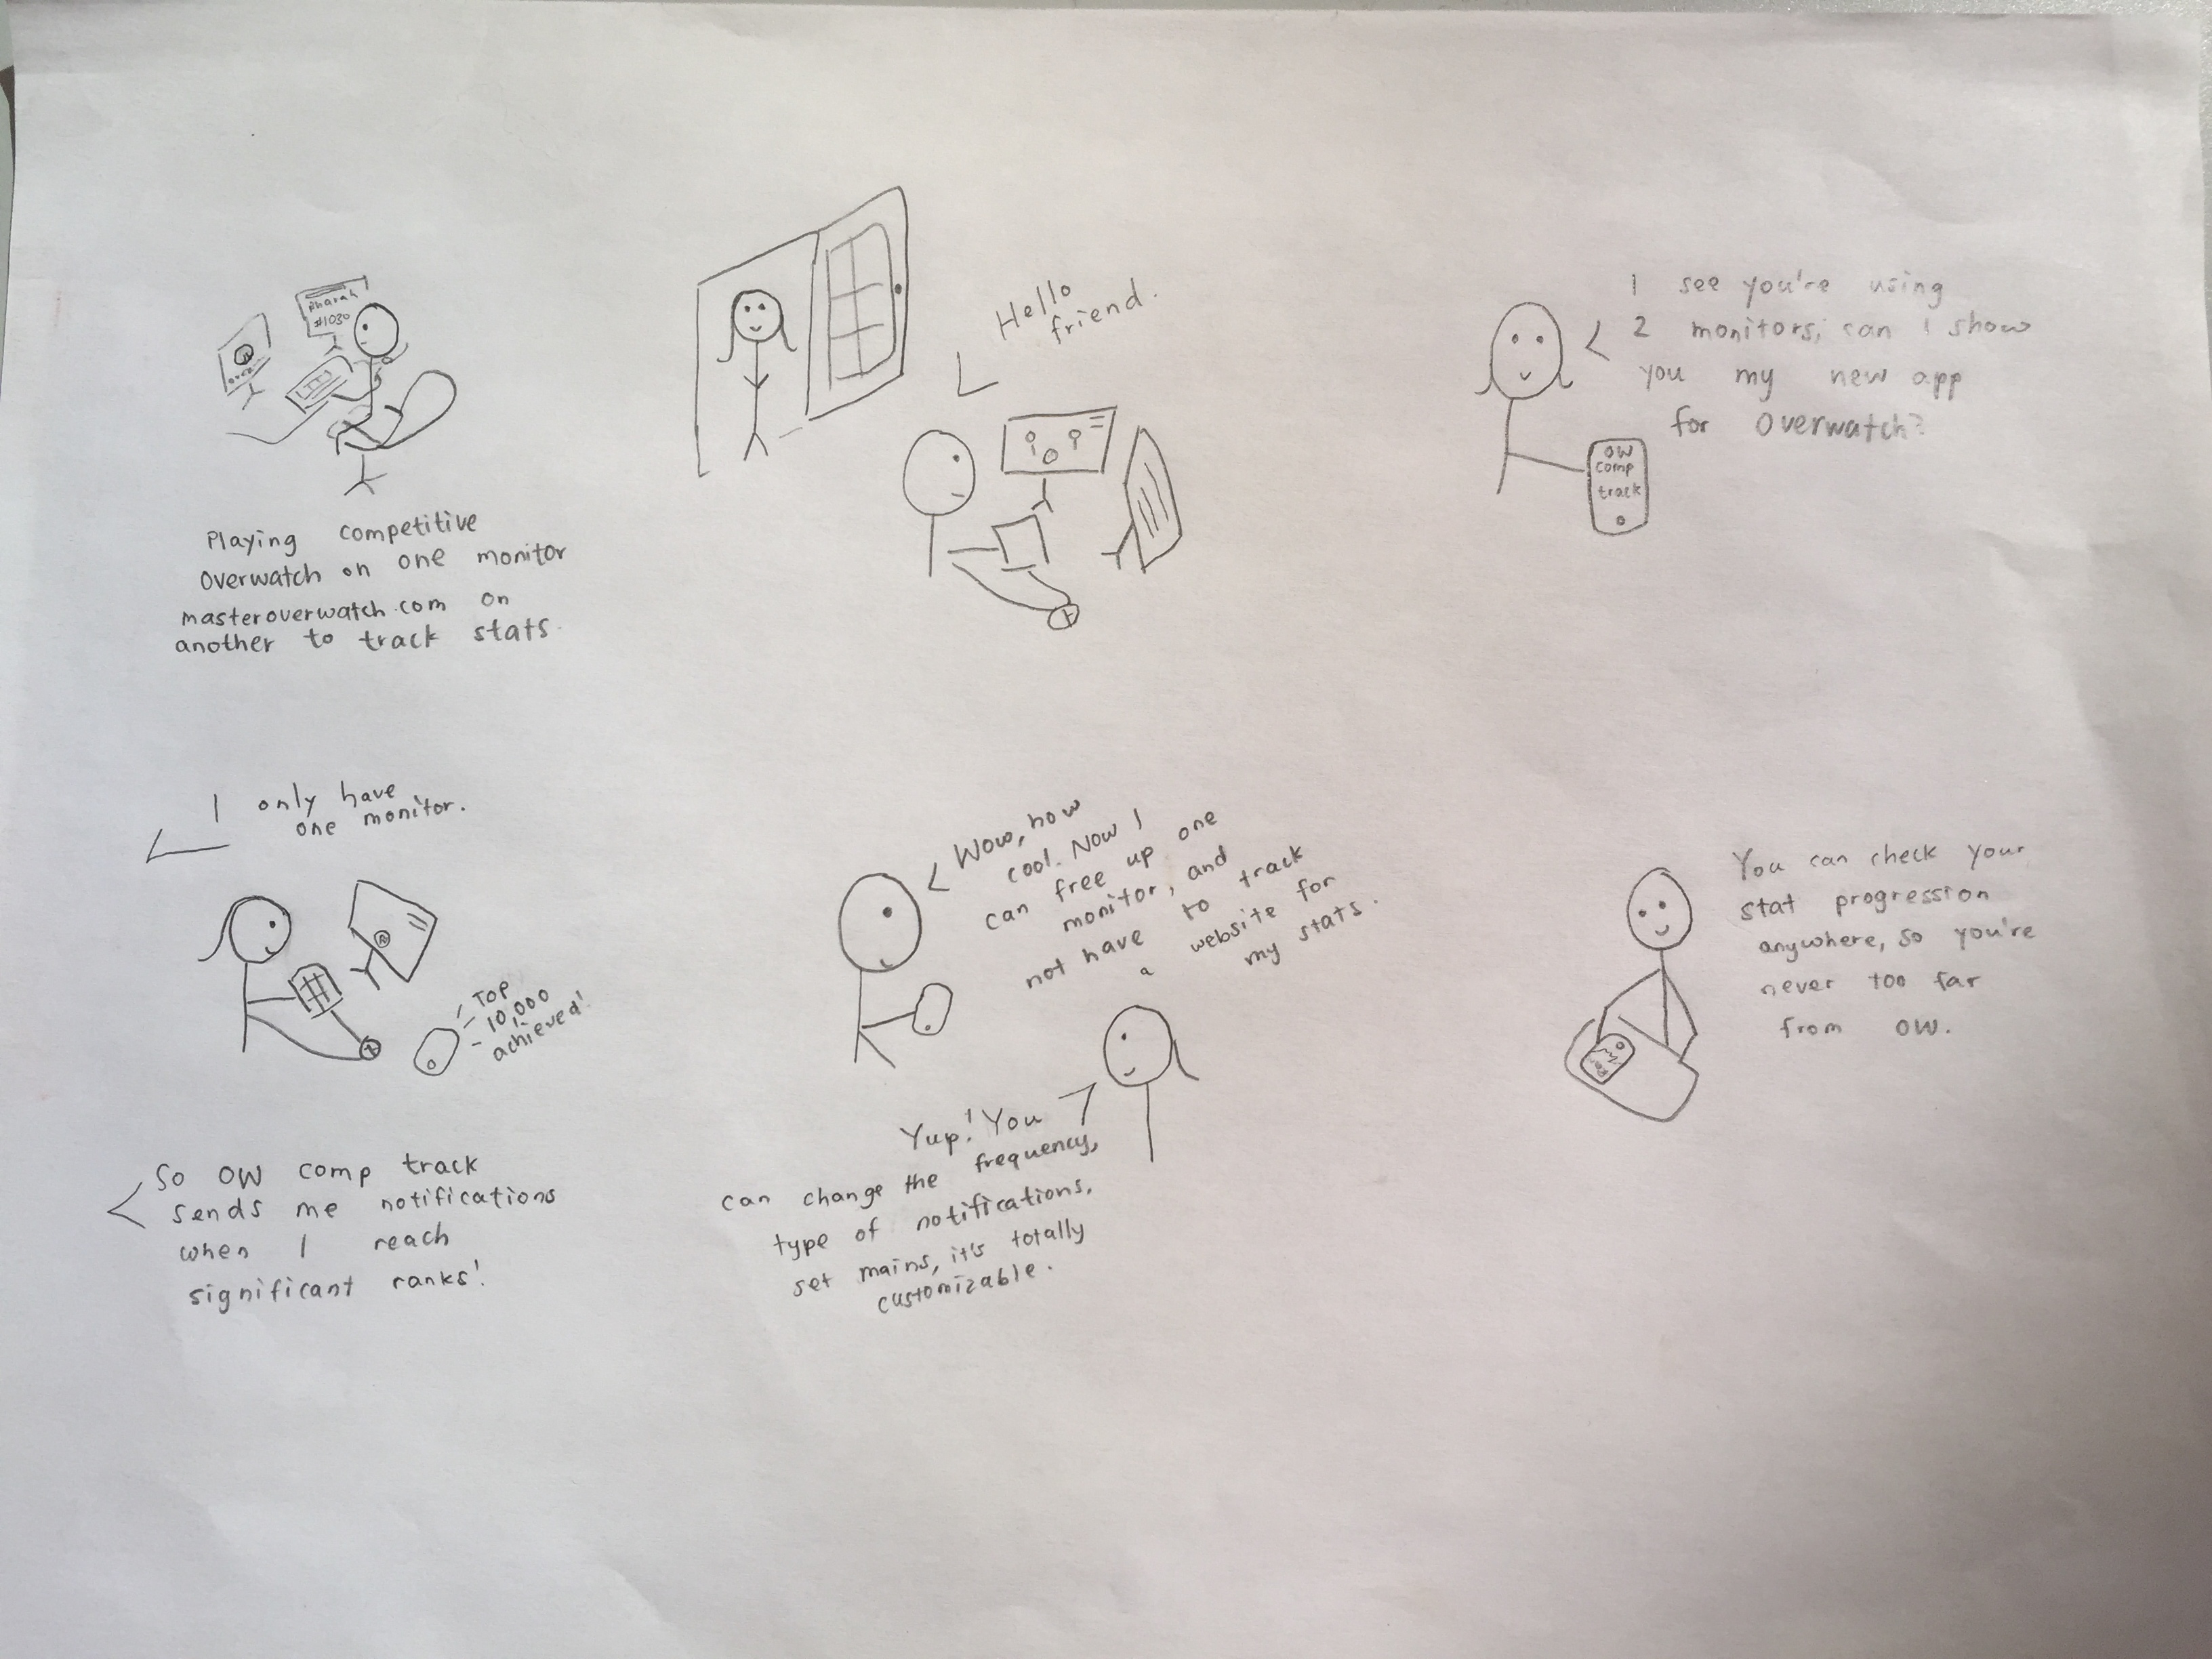 Pharah
#1030
Playing competitive
Overwatch on one monitor
masteroverwatch.com on
another to track stats.
Hello
friend.
I see you're using
2 monitors, can I show
you my new app
for Overwatch?
OW
comp
track
I only have
one monitor.
TOP
10,000
achieved!
So OW comp track
sends me notifications
when I reach
significant ranks!
Wow, how
cool. Now I
can free up one
monitor, and
not have to track
a website for
my stats.
Yup! You
can change the frequency,
type of notifications,
set mains, it's totally
customizable.
You can check your
stat progression
anywhere, so you're
never too far
from OW.